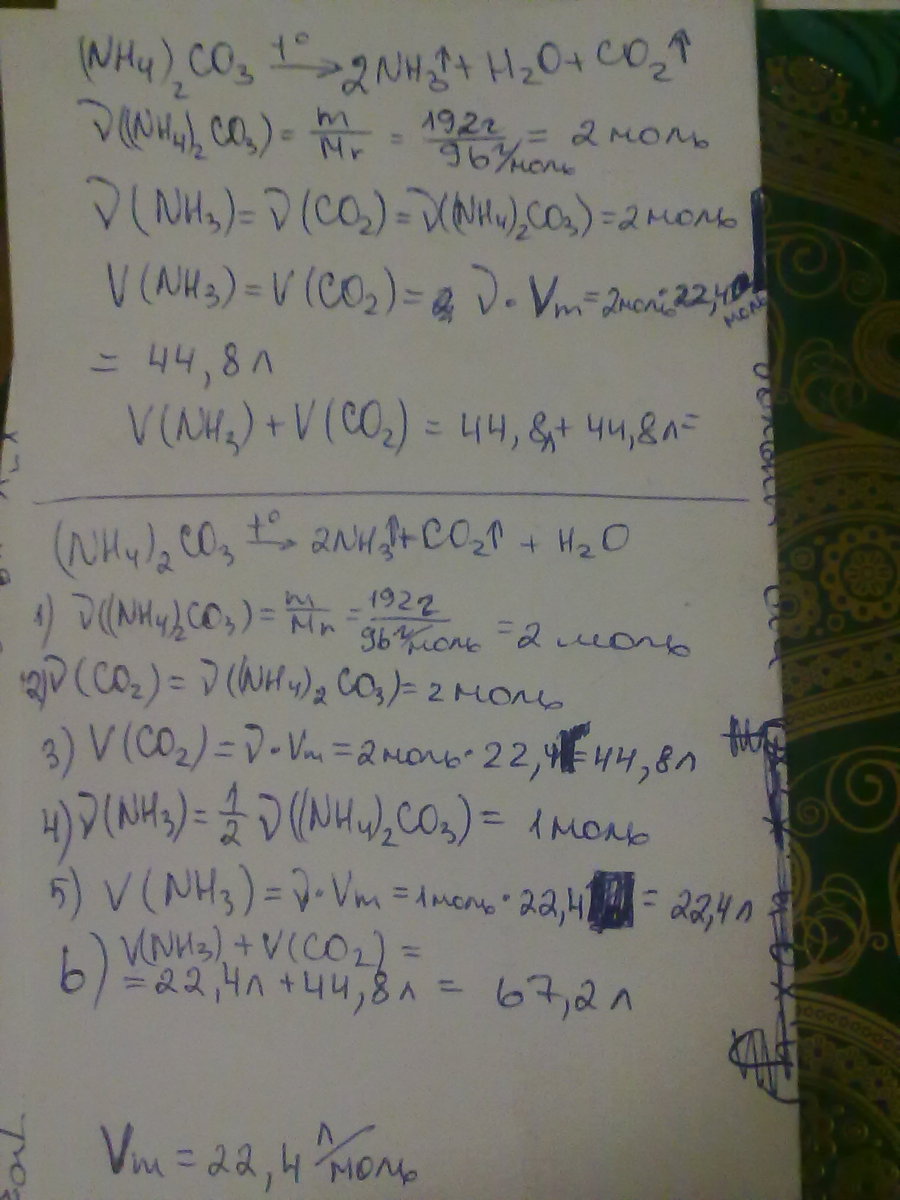 (NH4)2CO3 t°→ 2NH3↑ + H2O + CO2↑
ν((NH4)2CO3) = m/Mr = 192г/96 г/моль = 2 моль
ν(NH3) = ν(CO2) = ν((NH4)2CO3) = 2 моль
V(NH3) = V(CO2) = ν · Vm = 2 моль · 22,4 моль
= 44,8 л
V(NH3) + V(CO2) = 44,8л + 44,8л =
(NH4)2CO3 t°→ 2NH3↑ + CO2↑ + H2O
1) ν((NH4)2CO3) = m/Mr = 192г/96 г/моль = 2 моль
2) ν(CO2) = ν((NH4)2CO3) = 2 моль
3) V(CO2) = ν · Vm = 2 моль · 22,4 = 44,8 л
4) ν(NH3) = 1/2 ν((NH4)2CO3) = 1 моль
5) V(NH3) = ν · Vm = 1 моль · 22,4 = 22,4 л
6) V(NH3) + V(CO2) =
= 22,4л + 44,8л = 67,2 л
Vm = 22,4 л/моль